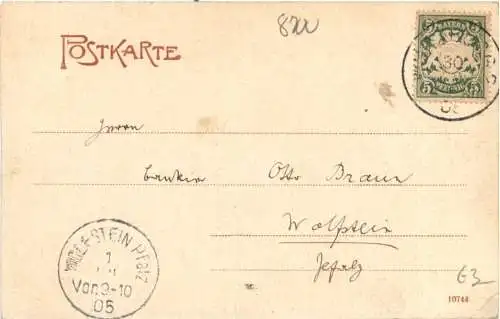 8200
POSTKARTE
BAYERN
5 5
30
05
Herrn
Bankier Otto Braun
Wolfstein
Pfalz
WOLFSTEIN Pfalz
1
Vor.9-10
05
63
10744